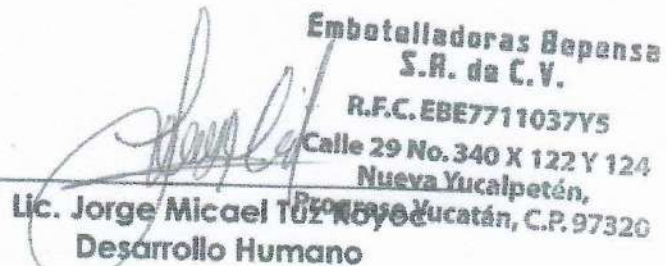 Embotelladoras Bepensa
S.A. de C.V.
R.F.C. EBE7711037Y5
Calle 29 No. 340 X 122 Y 124
Nueva Yucalpetén,
Progreso Yucatán, C.P. 97320
Lic. Jorge Micael Tuz
Desarrollo Humano